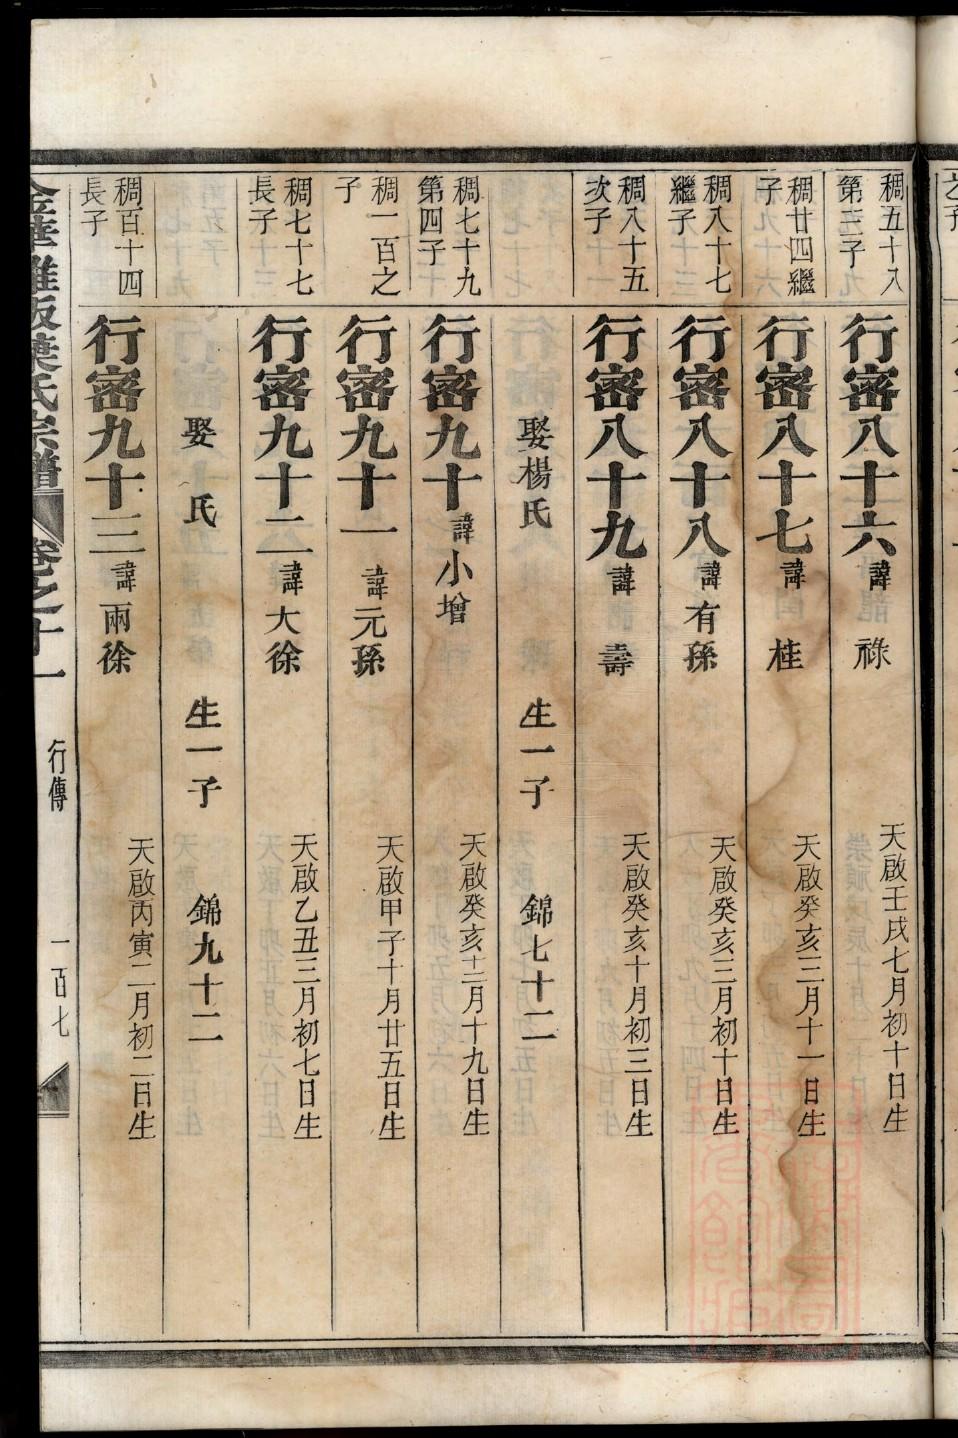 稠五十八
第三子
行密八十六 諱 祿
天啟壬戌七月初十日生
稠廿四繼
子
行密八十七 諱 桂
天啟癸亥三月十一日生
稠八十七
繼子
行密八十八 諱 有孫
天啟癸亥三月初十日生
稠八十五
次子
行密八十九 諱 壽
天啟癸亥十月初三日生
娶楊氏 生一子 錦七十二
稠七十九
第四子
行密九十 諱 小增
天啟癸亥十二月十九日生
稠一百之
子
行密九十一 諱 元孫
天啟甲子十月廿五日生
稠七十七
長子
行密九十二 諱 大徐
天啟乙丑三月初七日生
娶 氏 生一子 錦九十二
稠百十四
長子
行密九十三 諱 兩徐
天啟丙寅二月初二日生
金華 版葉氏宗譜 卷之十一 行傳 一百七